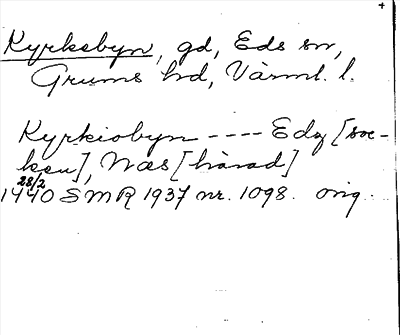 Kyrkebyn, gd, Eds sn,
Grums hd, Värml. l.
Kyrkiobyn ---- Edz [soc-
ken], Næs [härad]
28/2
1440 SMR 1937 nr. 1098. orig.